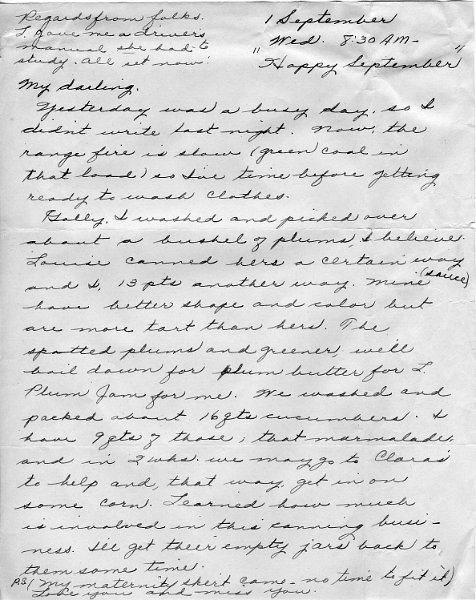 Regards from folks.
L. gave me a drivers
manual she had to
study. All set now!
1 September
Wed. 8:30 AM-
"Happy September"
My darling,
Yesterday was a busy day, so I
didn't write last night. Now, the
range fire is slow (green coal in
that load) so I've time before getting
ready to wash clothes.
Golly, I washed and picked over
about a bushel of plums I believe.
Louise canned hers a certain way
and I, 13 pts another way. Mine (sauce)
have better shape and color but
are more tart than hers. The
spotted plums and greener, we'll
boil down for plum butter for L.
Plum Jam for me. We washed and
packed about 16 qts cucumbers. I
have 9 qts of those; that marmalade,
and in 2 wks. we may go to Clara's
to help and, that way, get in on
some corn. Learned how much
is involved in this canning busi-
ness. I'll get their empty jars back to
them some time.
P.S. (My maternity skirt came - no time to fit it)
Love you and miss you.